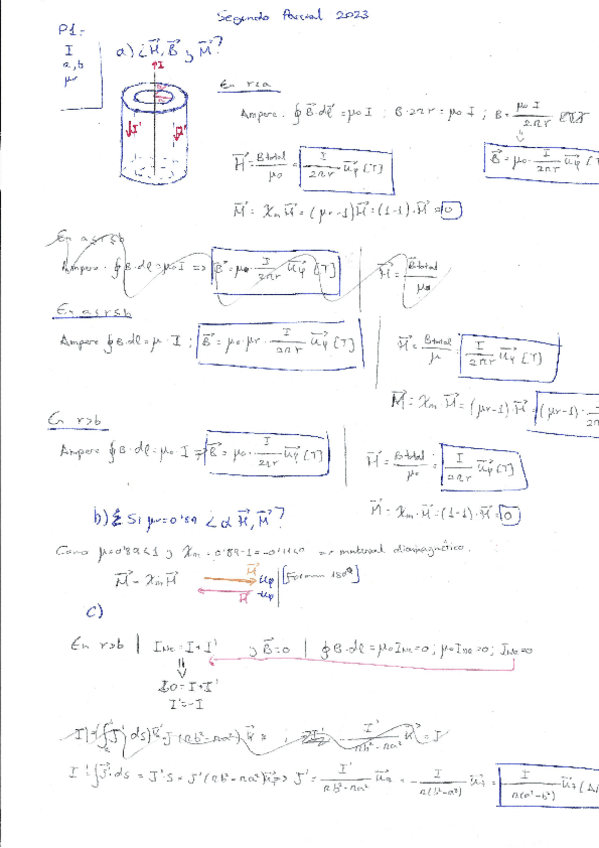 Segundo Parcial 2023
P1:
I
a, b
μ
a) ¿H⃗, B⃗ y M⃗?
I
I' I'
En r≤a
Ampere: ∮B⃗·dl⃗ = μ₀I ; B·2πr = μ₀I ; B = μ₀I/2πr
H⃗ = Btotal/μ₀ = I/2πr u⃗φ [T]
B⃗ = μ₀· I/2πr u⃗φ [T
M⃗ = Xm H⃗ = (μr-1)H⃗ = (1-1)·H⃗ = 0
En a≤r≤b
Ampere: ∮B·dl = μ₀I => B⃗ = μ₀· I/2πr u⃗φ [T] | H⃗ = Btotal/μ₀
En a≤r≤b
Ampere ∮B·dl = μ·I ; B⃗ = μ₀·μr· I/2πr u⃗φ [T] | H⃗ = Btotal/μ = I/2πr u⃗φ [T]
M⃗ = Xm H⃗ = (μr-1)·H⃗ = (μr-1)·
En r>b
Ampere ∮B·dl = μ₀·I => B⃗ = μ₀· I/2πr u⃗φ [T] | H⃗ = Btotal/μ₀ = I/2πr u⃗φ [T]
M⃗ = Xm·H⃗ = (1-1)·H⃗ = 0
b) Si μr=0'89 ¿α H⃗, M⃗?
Como μ=0'89<1 y Xm = 0'89-1 = => material diamagnético.
M⃗ = Xm H⃗ uφ -uφ [Forman 180º]
c)
En r>b | INc = I+I' y B⃗=0 | ∮B·dl = μ₀INc=0 ; μ₀INc=0 ; INc=0
0=I+I'
I'=-I
I' = ∫J⃗'·ds = J'·S = J'(πb²-πa²) => J' = I'/πb²-πa² = - I/π(b²-a²) = I/π(a²-b²)